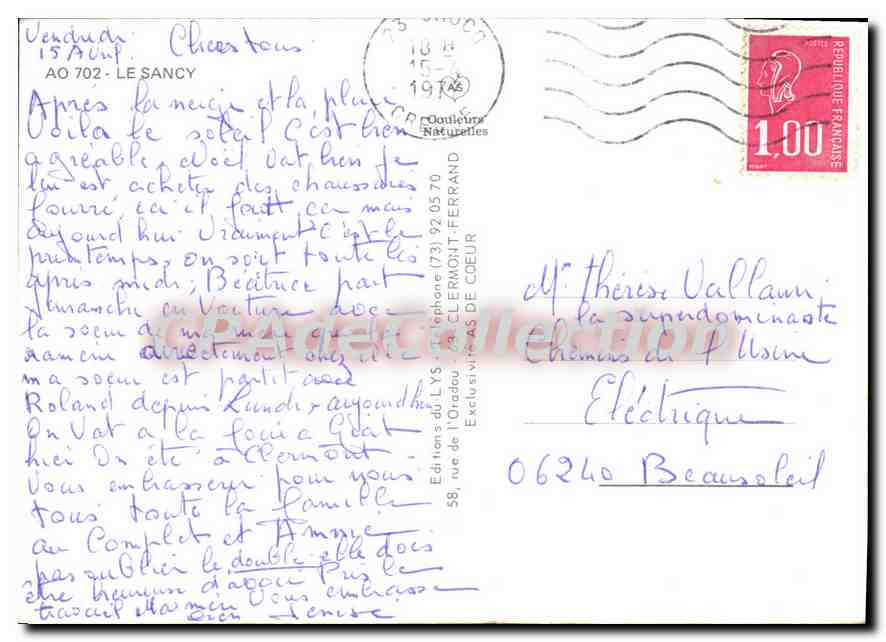 Vendredi
15 Avril Chers tous
AO 702 - LE SANCY
Après la neige et la pluie
Voila le soleil C'est bien
agréable, Noël Vat bien je
lui est acheter des chaussures
fourré, ca il faut ca mais
aujourd hui Vraiment C'est le
printemps, on sort toute les
après midi; Béatrice part
dimanche en Voiture avec
la soeur de
ramène directement chez
ma soeur est partit avec
Roland depuis Lundi, aujourd hui
On Vat a la foire a Giat
hier On été à Clermont
Vous embrasser pour nous
tous toute la famille
au Complet et
pas oublier le double elle dois
être heureuse d'avoir Pris le
travail Vous embrasse
bien Denise
18 H
15-4
197
AS
Couleurs
Naturelles
Editions du LYS - Téléphone (73) 92 05 70
58, rue de l'Oradou - 63 CLERMONT-FERRAND
Exclusivité AS DE COEUR
CPADeCollection
POSTES
REPUBLIQUE FRANÇAISE
1,00
Me Thérèse Vallauri
la superdominante
Chemin de l'Usine
Eléctrique
06240 Beausoleil